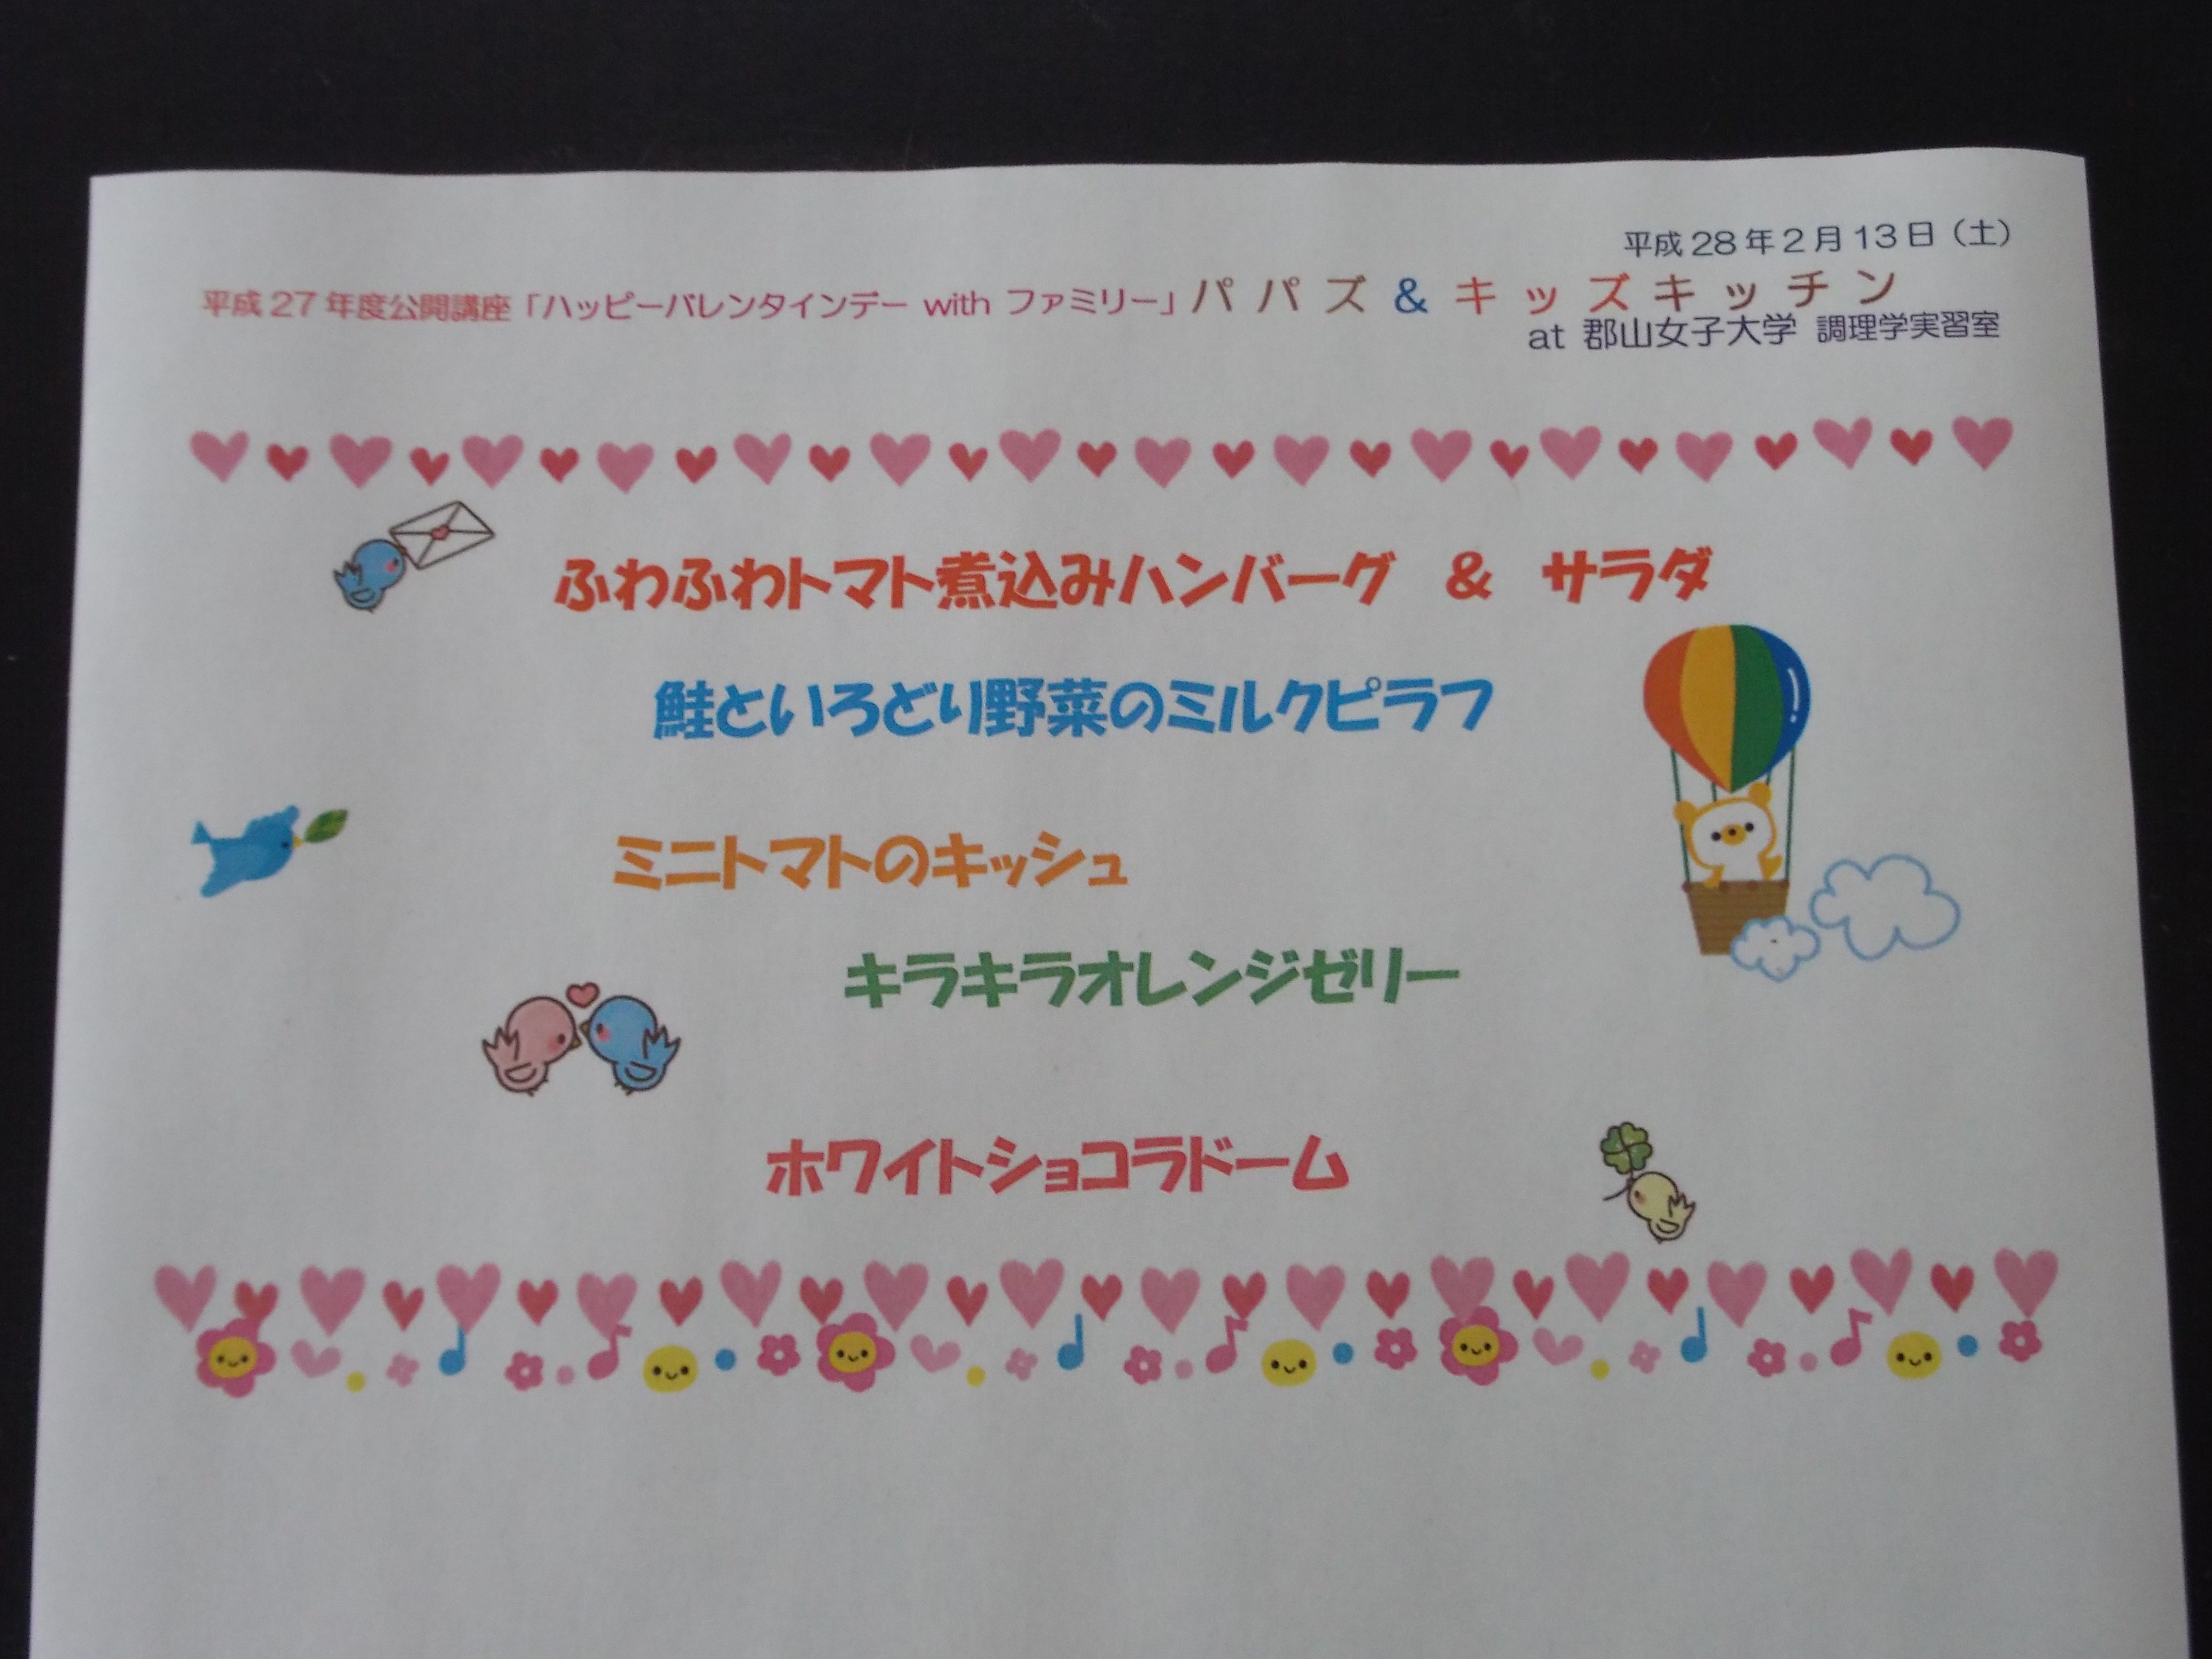 平成28年2月13日（土）
平成27年度公開講座「ハッピーバレンタインデー with ファミリー」パパズ＆キッズキッチン
at 郡山女子大学 調理学実習室
ふわふわトマト煮込みハンバーグ ＆ サラダ
鮭といろどり野菜のミルクピラフ
ミニトマトのキッシュ
キラキラオレンジゼリー
ホワイトショコラドーム